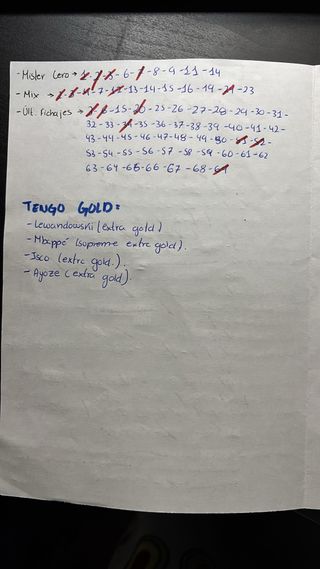 - Mister Cero → 1 - 2 - 3 - 6 - 7 - 8 - 9 - 11 - 14
- Mix → 7 - 13 - 14 - 15 - 16 - 19 - 21 - 23
- Últ. Fichajes → 15 - 20 - 25 - 26 - 27 - 28 - 29 - 30 - 31 -
32 - 33 - 34 - 35 - 36 - 37 - 38 - 39 - 40 - 41 - 42 -
43 - 44 - 45 - 46 - 47 - 48 - 49 - 50 - 51 - 52 -
53 - 54 - 55 - 56 - 57 - 58 - 59 - 60 - 61 - 62
63 - 64 - 65 - 66 - 67 - 68 - 69
TENGO GOLD:
- Lewandowski (extra gold)
- Mbappé (supreme extra gold).
- Isco (extra gold.).
- Ayoze (extra gold).